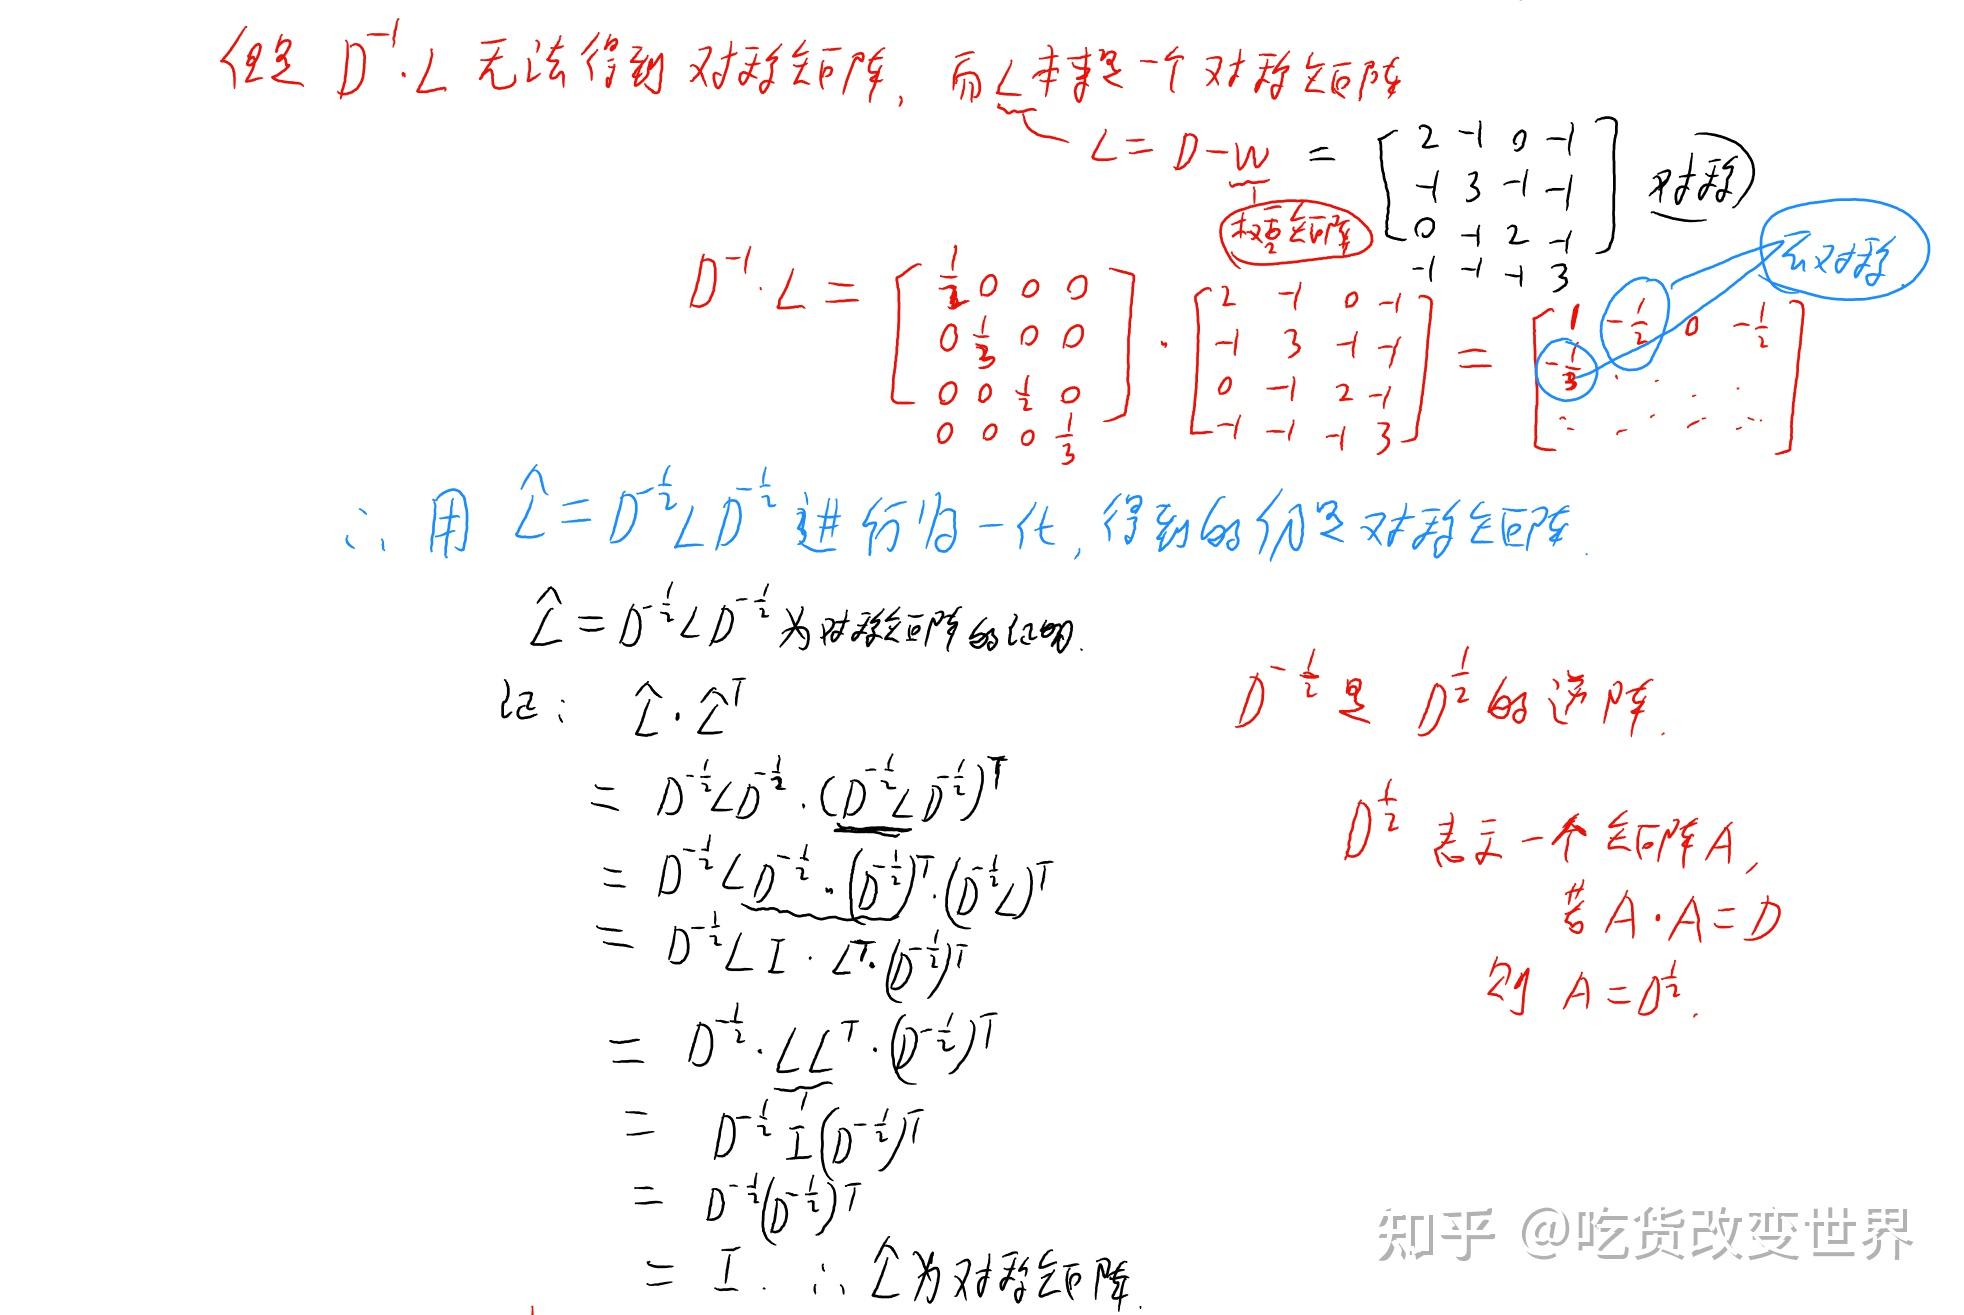 但是 D^{-1}·L 无法得到对称矩阵, 而L本来是一个对称矩阵
L = D-W = [2 -1 0 -1
-1 3 -1 -1
0 -1 2 -1
-1 -1 -1 3] 对称
权重矩阵
不对称
D^{-1}·L = [1/2 0 0 0
0 1/3 0 0
0 0 1/2 0
0 0 0 1/3] · [2 -1 0 -1
-1 3 -1 -1
0 -1 2 -1
-1 -1 -1 3] = [1 -1/2 0 -1/2
-1/3 . . .
. . . . .]
∴ 用 L̂ = D^{-1/2}LD^{-1/2} 进行归一化, 得到的仍是对称矩阵.
L̂ = D^{-1/2}LD^{-1/2} 为对称矩阵的证明.
证: L̂·L̂^T
= D^{-1/2}LD^{-1/2}·(D^{-1/2}LD^{-1/2})^T
= D^{-1/2}LD^{-1/2}·(D^{-1/2})^T·(D^{-1/2}L)^T
= D^{-1/2}LI·L^T·(D^{-1/2})^T
= D^{-1/2}·LL^T·(D^{-1/2})^T
= D^{-1/2}I(D^{-1/2})^T
= D^{-1/2}(D^{-1/2})^T
= I. ∴ L̂为对称矩阵.
D^{-1/2}是 D^{1/2}的逆阵.
D^{1/2} 表示一个矩阵A,
若 A·A=D
则 A=D^{1/2}.
知乎 @吃货改变世界